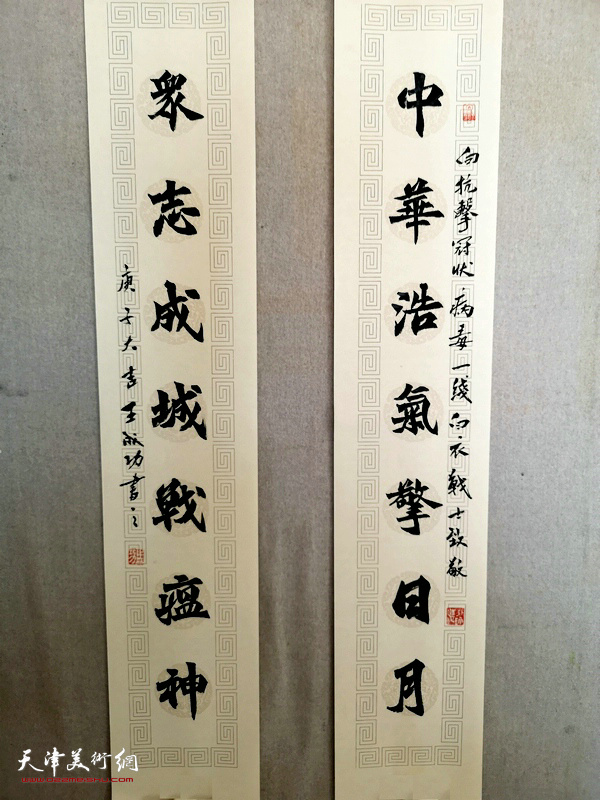 中華浩氣擎日月
向抗擊冠狀病毒一线白衣戰士致敬
眾志成城戰瘟神
庚子大吉王成功書之
天津美術網